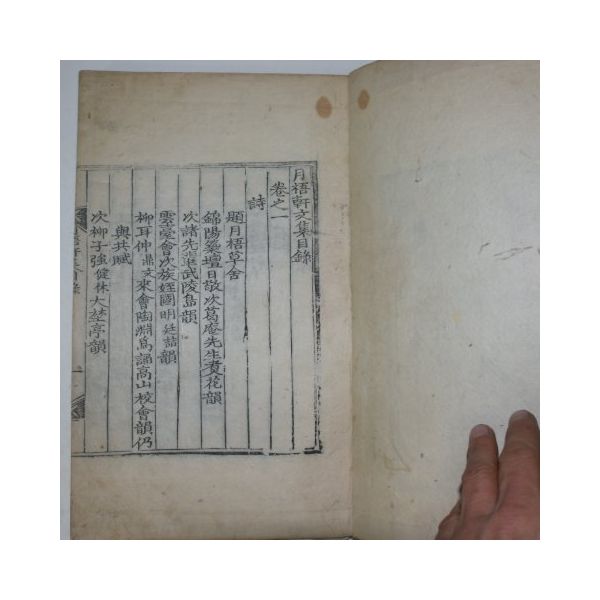 月梧軒文集目錄
卷之一
詩
題月梧草舍
錦陽築壇日敬次葛庵先生賞花韻
次諸先輩武陵島韻
雲臺會次族姪國明廷喆韻
柳耳仲鼎文來會陶淵爲誦高山校會韻仍
與共賦
次柳子强健林大埜亭韻